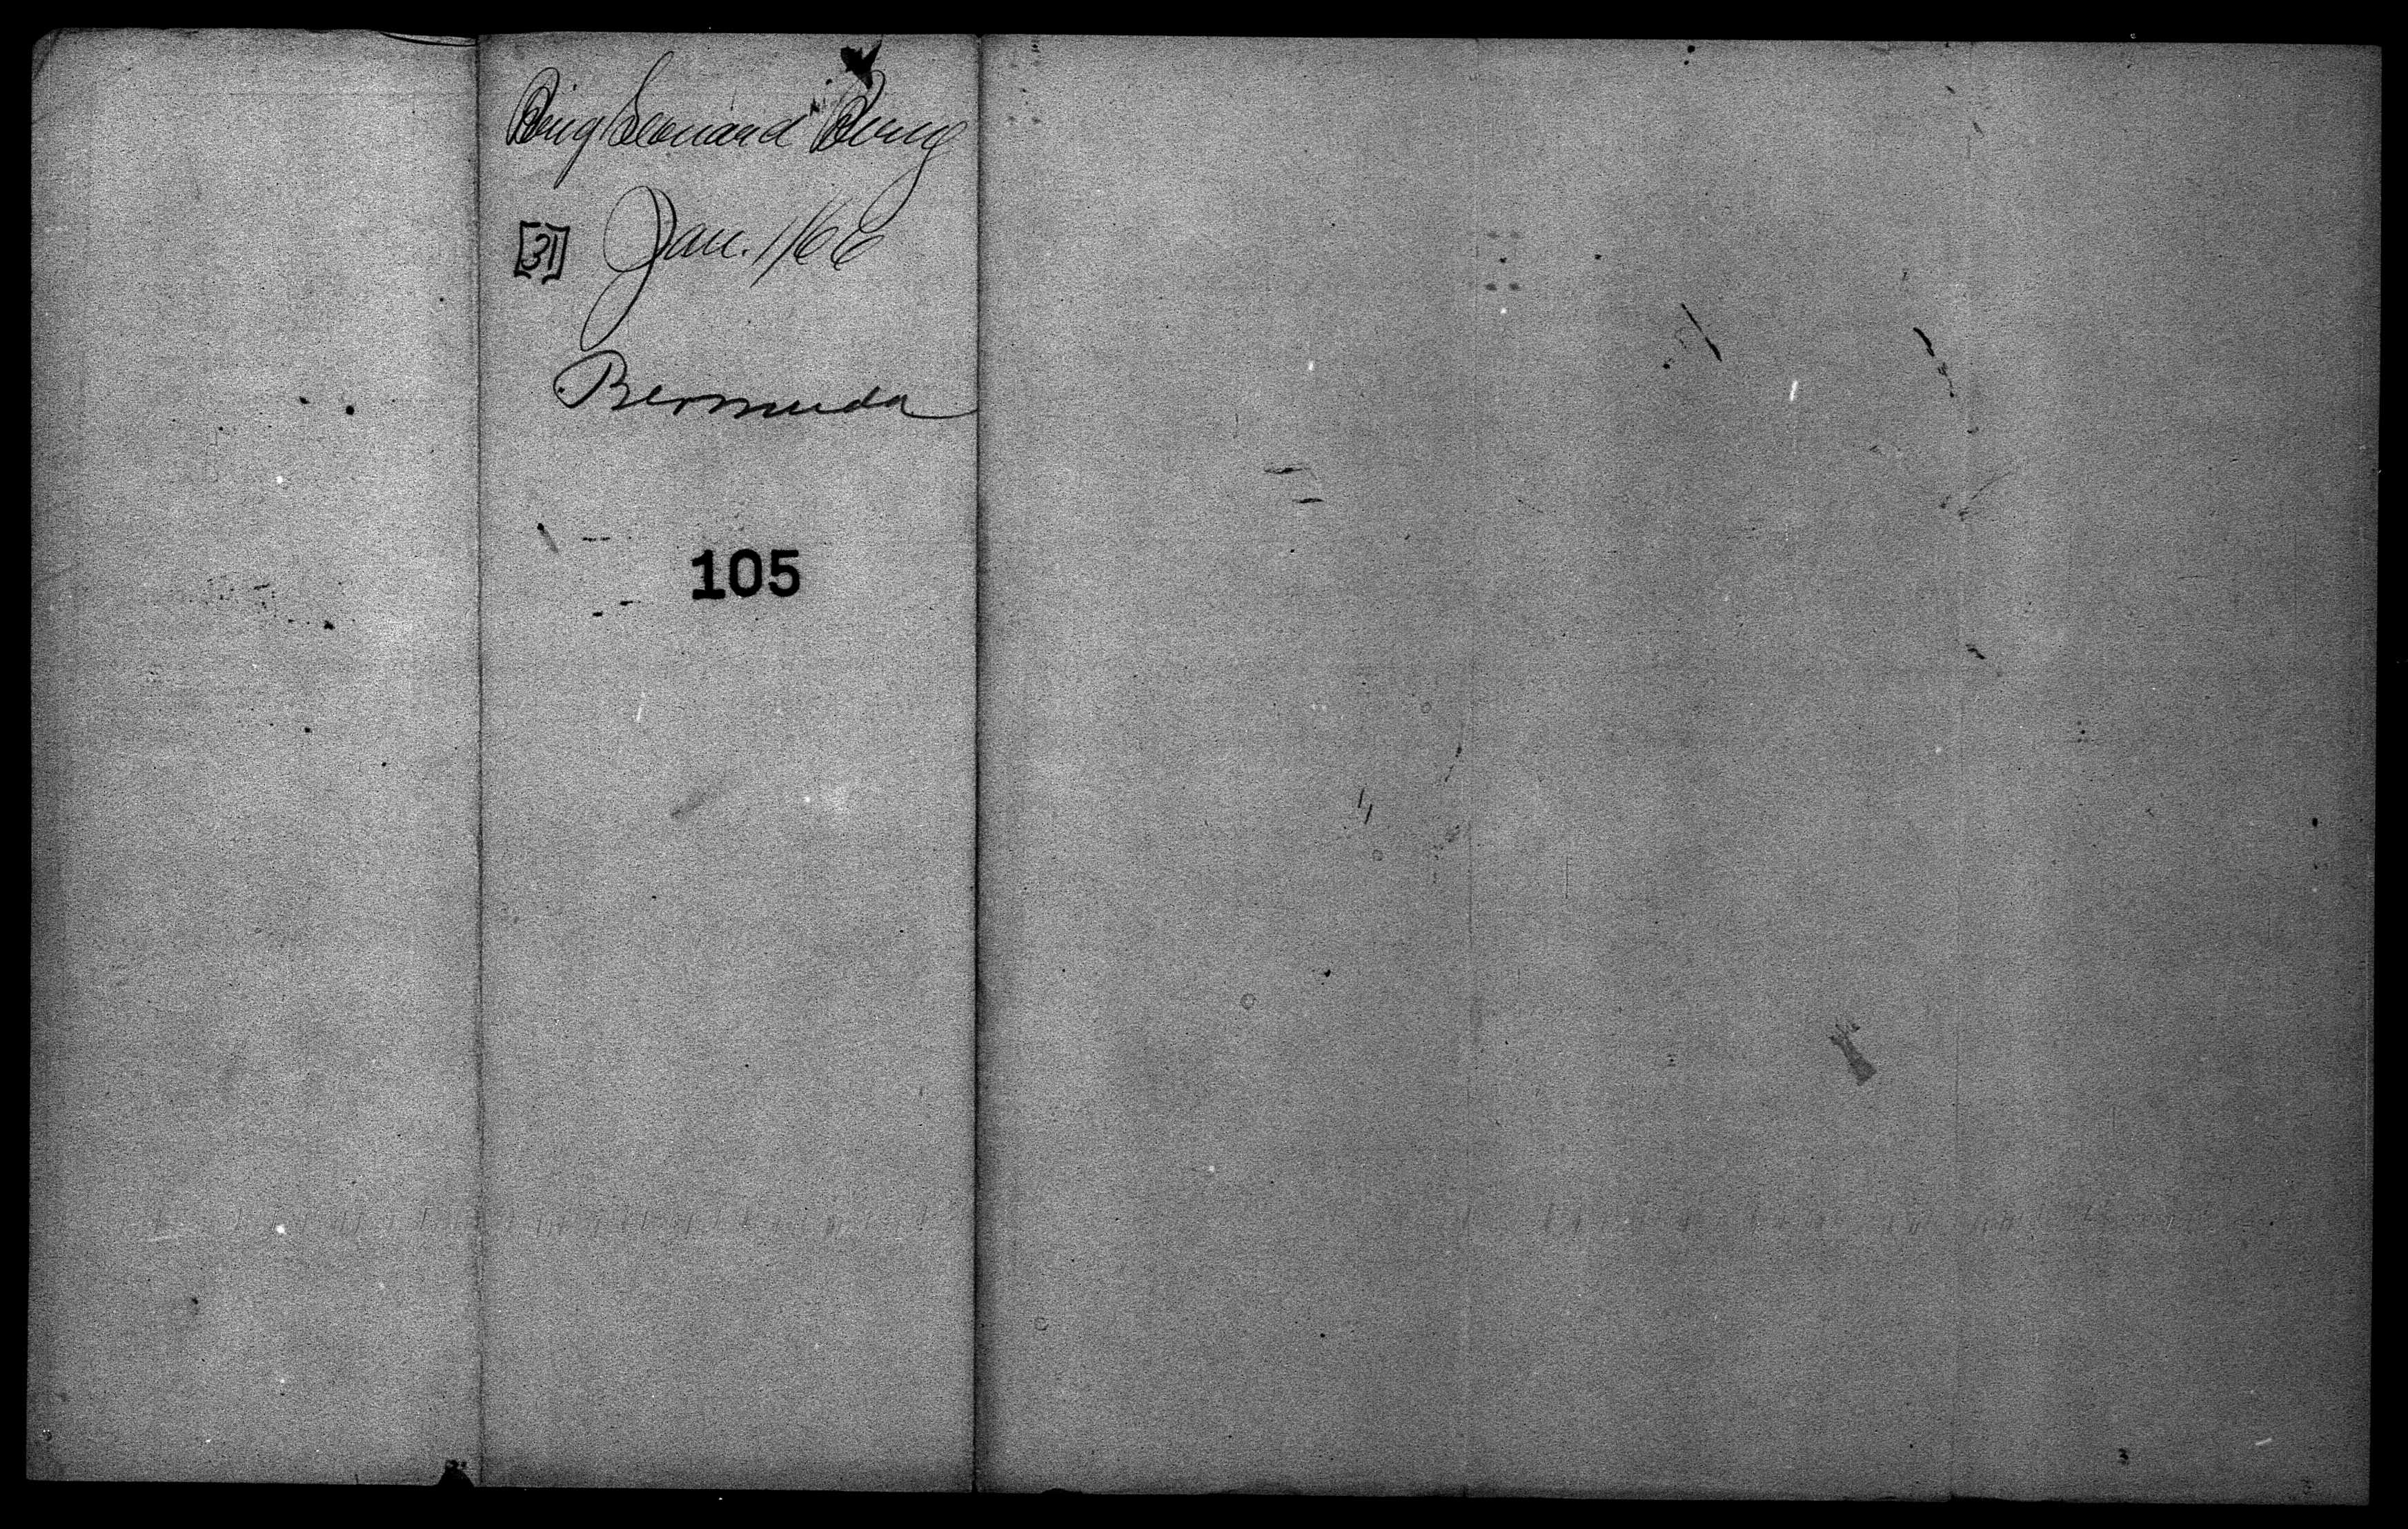 Brig Leonard Berry
[31] Jan. 1/66
Bermuda
105